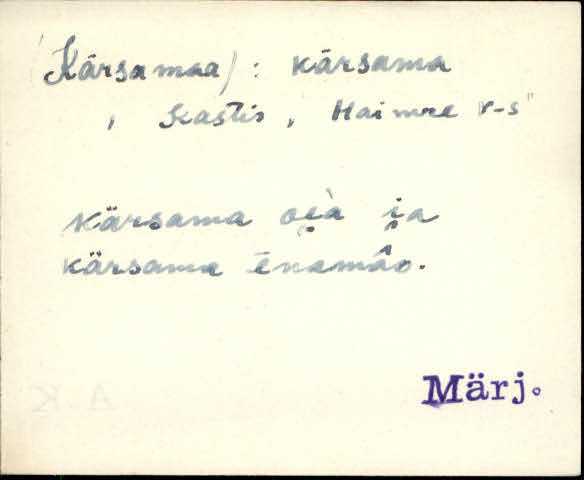 (Kärsamaa): kärsama
, Kastis, Haimre r-s
kärsama oi̯à i̯a
kärsama ēnamâo.
Märj.